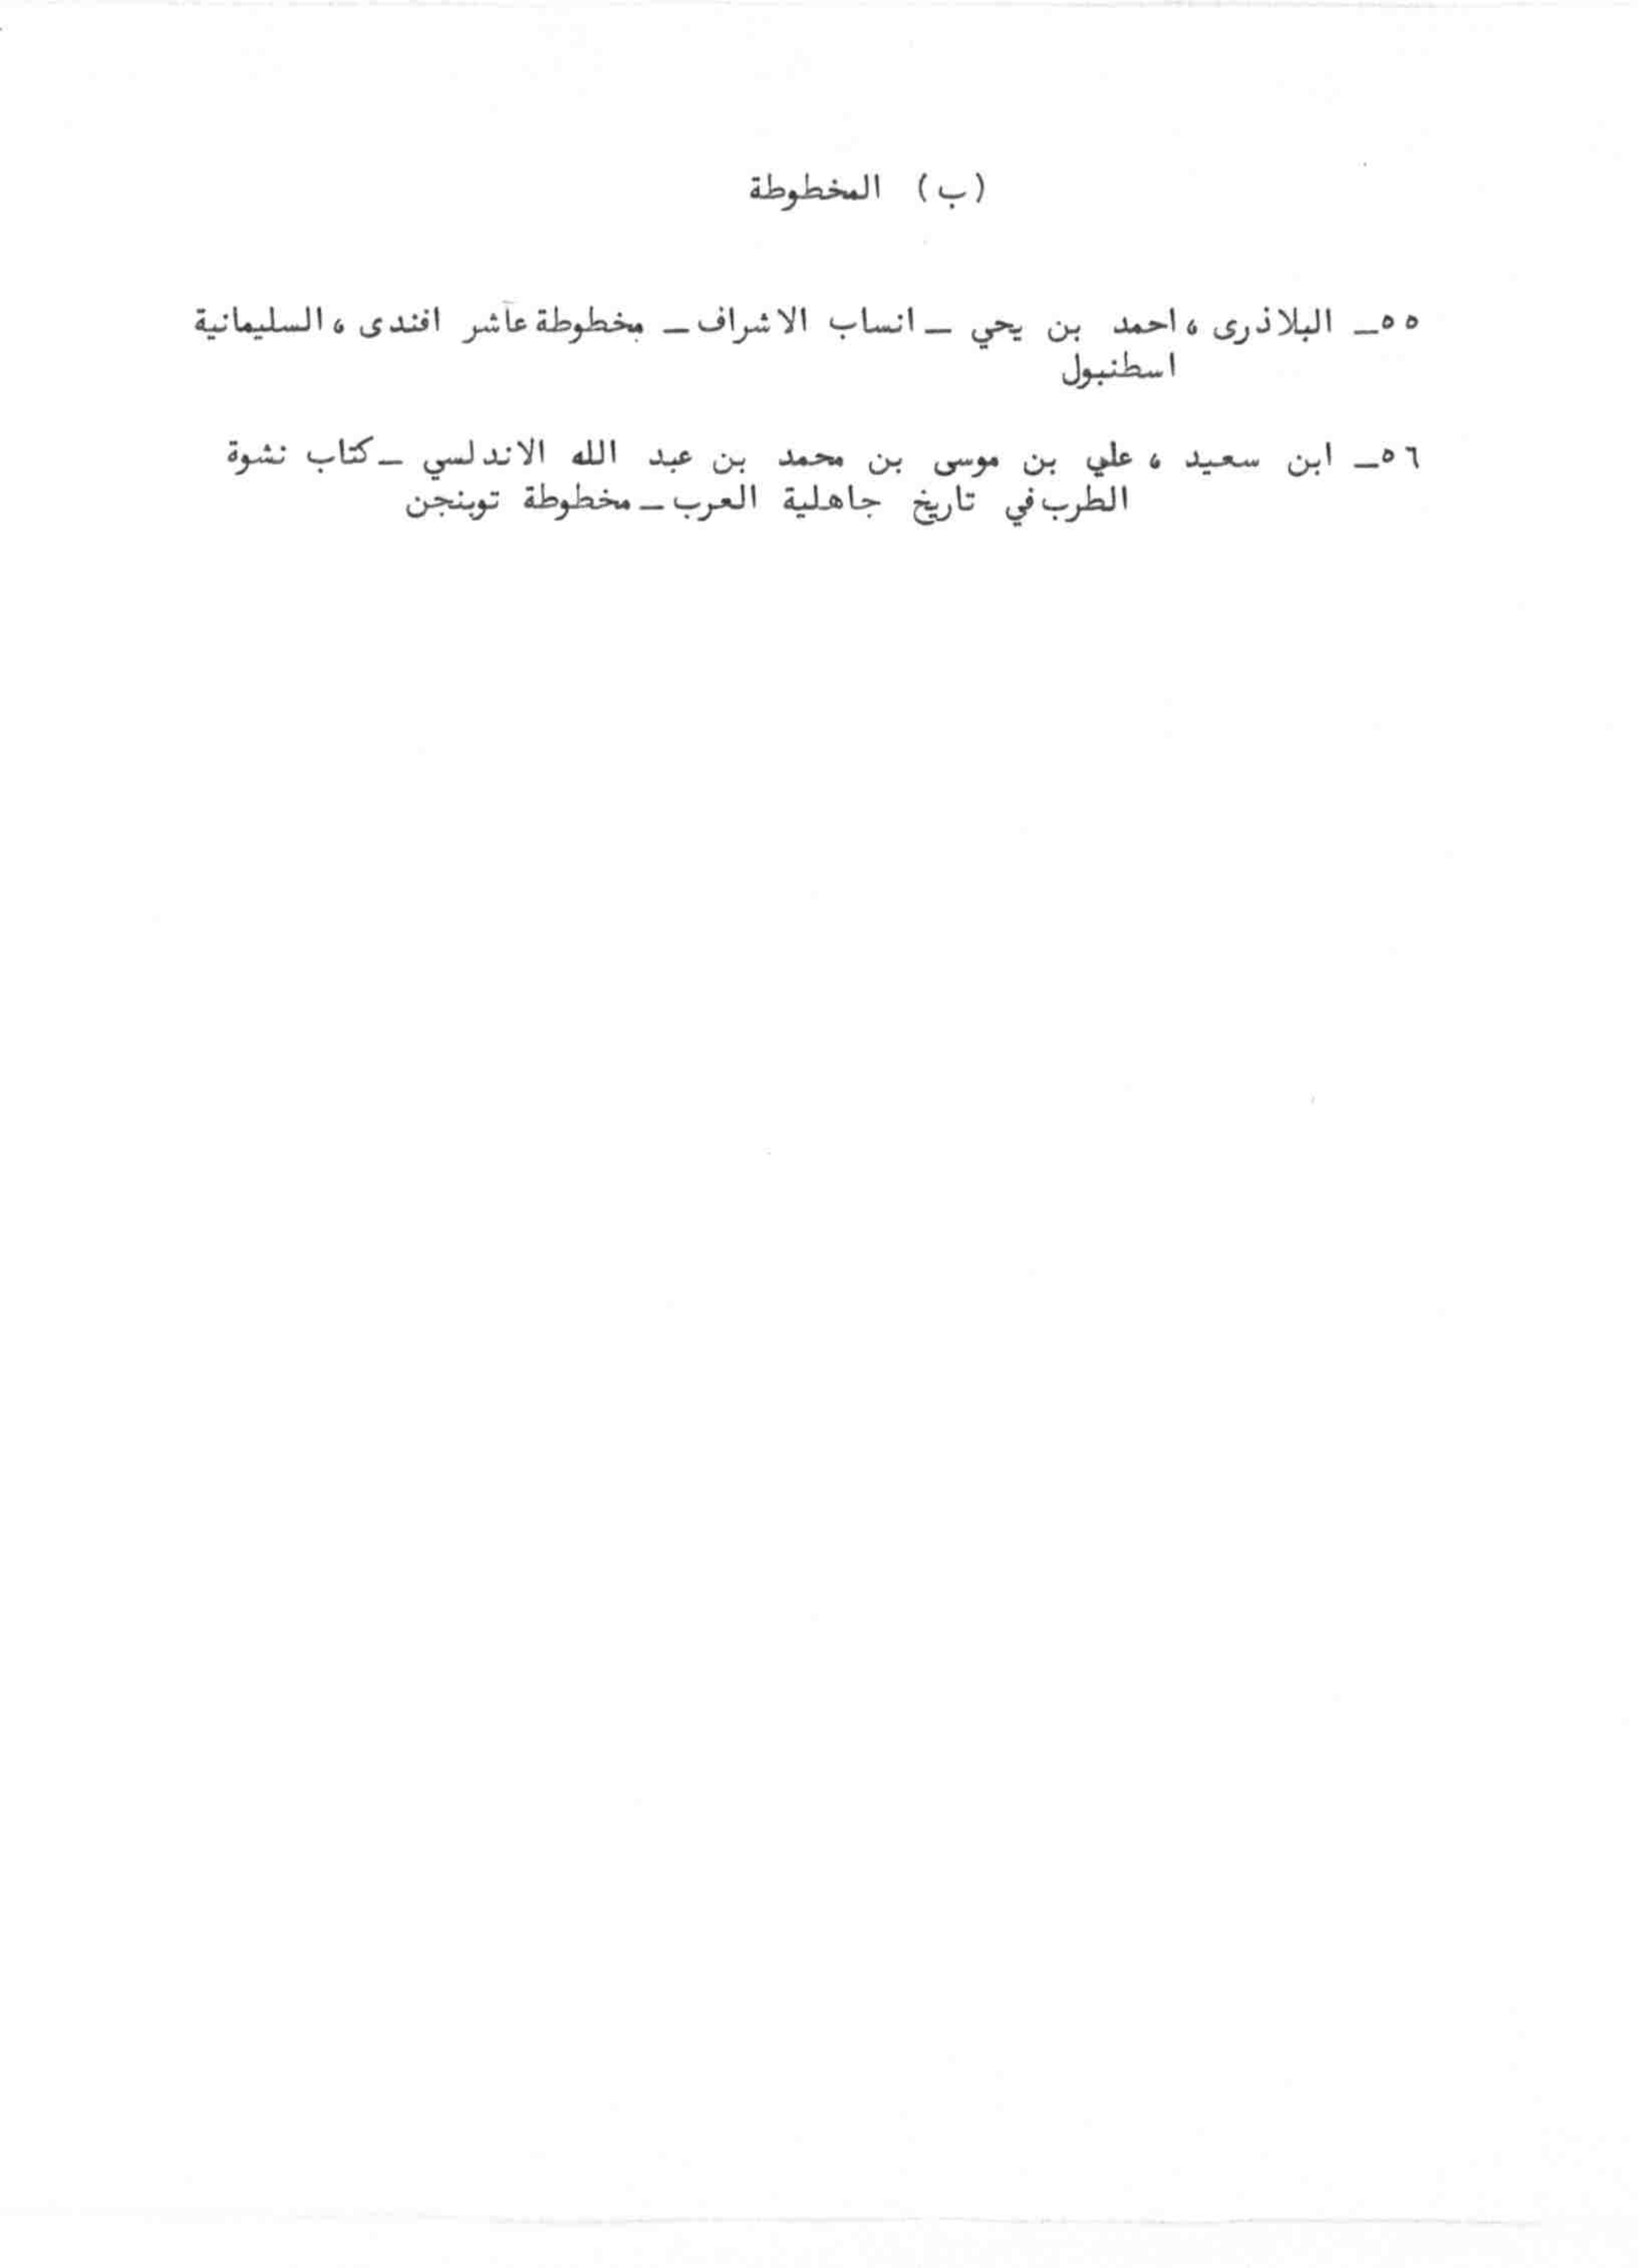 (ب) المخطوطة
٥٥ـ البلاذرى ، احمد بن يحي ـ انساب الاشراف ـ مخطوطة عاشر افندى ، السليمانية
اسطنبول
٥٦ـ ابن سعيد ، علي بن موسى بن محمد بن عبد الله الاندلسي ـ كتاب نشوة
الطرب في تاريخ جاهلية العرب ـ مخطوطة توبنجن